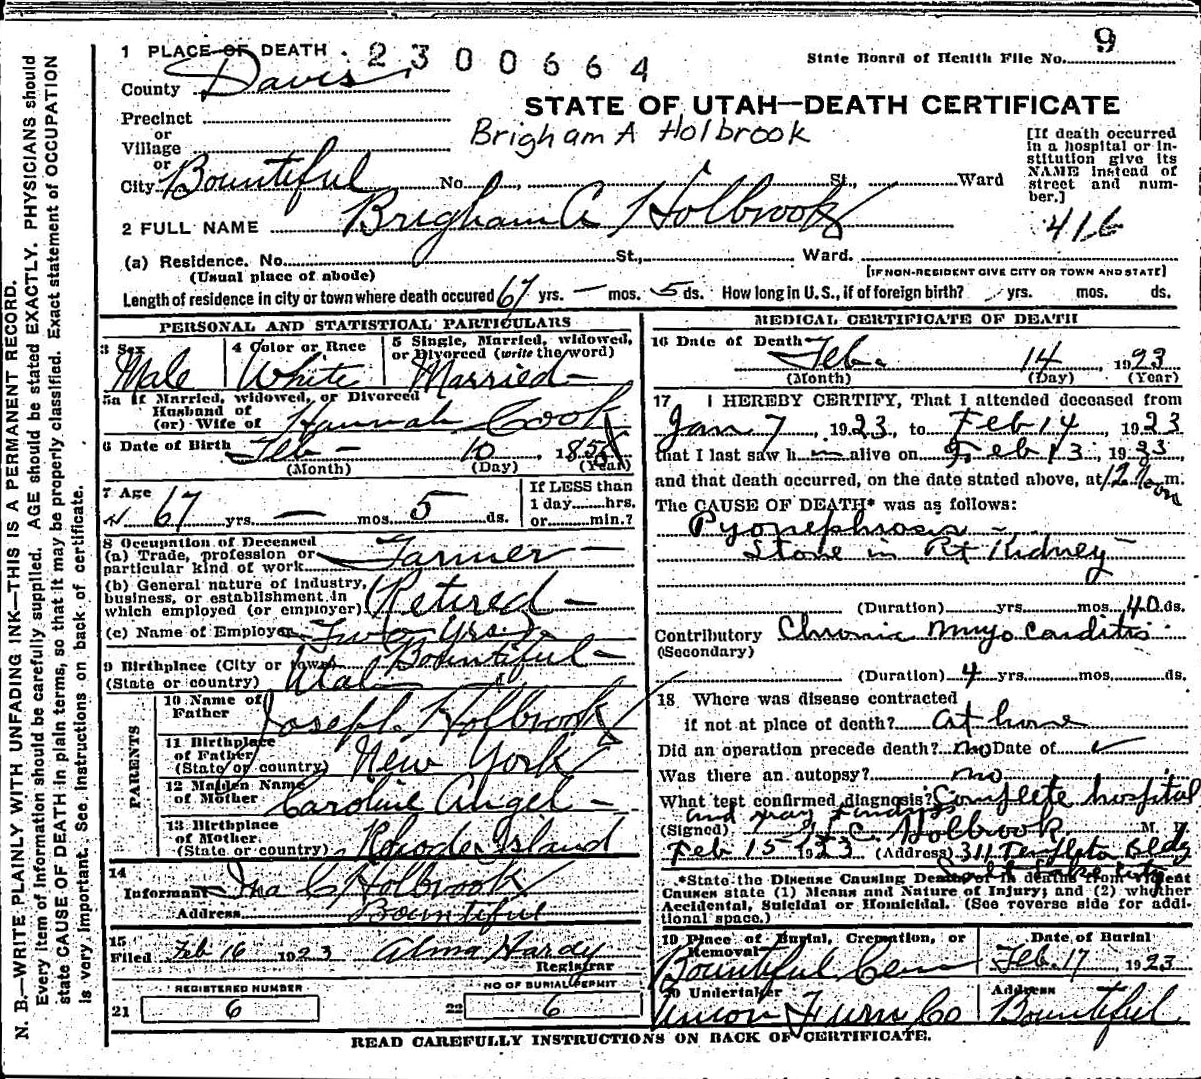 1 PLACE OF DEATH 2300664
State Board of Health File No. 9
County Davis
STATE OF UTAH—DEATH CERTIFICATE
Precinct
or
Village
Brigham A Holbrook
[If death occurred
in a hospital or in-
stitution give its
NAME instead of
street and num-
ber.]
or
City Bountiful No. , St., Ward
2 FULL NAME Brigham A Holbrook
416
(a) Residence. No. St., Ward.
(Usual place of abode)
[IF NON-RESIDENT GIVE CITY OR TOWN AND STATE]
Length of residence in city or town where death occured 67 yrs. — mos. 5 ds. How long in U.S., if of foreign birth? yrs. mos. ds.
PERSONAL AND STATISTICAL PARTICULARS
3 Sex
Male
4 Color or Race
White
5 Single, Married, widowed,
or Divorced (write the word)
Married —
5a If Married, widowed, or Divorced
Husband of
(or) Wife of Hannah Cook
6 Date of Birth Feb — 10, 185
(Month) (Day) (Year)
7 Age
67 yrs. — mos. 5 ds.
If LESS than
1 day......hrs.
or......min.?
8 Occupation of Deceased
(a) Trade, profession or
particular kind of work Farmer —
(b) General nature of industry,
business, or establishment in
which employed (or employer) (Retired —
(c) Name of Employer Two yrs.)
9 Birthplace (City or town) Bountiful —
(State or country) Utah
PARENTS
10 Name of
Father Joseph Holbrook
11 Birthplace
of Father
(State or country) New York
12 Maiden Name
of Mother Caroline Angel —
13 Birthplace
of Mother
(State or country) Rhode Island
14
Informant Ina C Holbrook
Address Bountiful
15
Filed Feb 16 1923 Alma Hardy
Registrar
REGISTERED NUMBER
21 6
NO OF BURIAL PERMIT
22 6
MEDICAL CERTIFICATE OF DEATH
16 Date of Death
Feb. 14, 1923
(Month) (Day) (Year)
17 I HEREBY CERTIFY, That I attended deceased from
Jan 7, 1923, to Feb 14, 1923
that I last saw h m alive on Feb 13, 1923
and that death occurred, on the date stated above, at 12 Noon m.
The CAUSE OF DEATH* was as follows:
Pyonephrosis —
Stone in Rt Kidney —
(Duration) yrs. mos. 40 ds.
Contributory Chronic Myocarditis
(Secondary)
(Duration) 4 yrs. mos. ds.
18 Where was disease contracted
if not at place of death? at home
Did an operation precede death? no Date of ✓
Was there an autopsy? no
What test confirmed diagnosis? Complete hospital
and xray findings
(Signed) C. Holbrook M. D.
Feb 15 1923 (Address) 311 Templeton Bldg
Salt Lake City
*State the Disease Causing Death, or in deaths from Violent
Causes state (1) Means and Nature of Injury; and (2) whether
Accidental, Suicidal or Homicidal. (See reverse side for addi-
tional space.)
19 Place of Burial, Cremation, or
Removal
Bountiful Cem
Date of Burial
Feb. 17 1923
20 Undertaker
Union Furn Co
Address
Bountiful
READ CAREFULLY INSTRUCTIONS ON BACK OF CERTIFICATE.
N. B.—WRITE PLAINLY WITH UNFADING INK—THIS IS A PERMANENT RECORD.
Every item of information should be carefully supplied. AGE should be stated EXACTLY. PHYSICIANS should
state CAUSE OF DEATH in plain terms, so that it may be properly classified. Exact statement of OCCUPATION
is very important. See instructions on back of certificate.